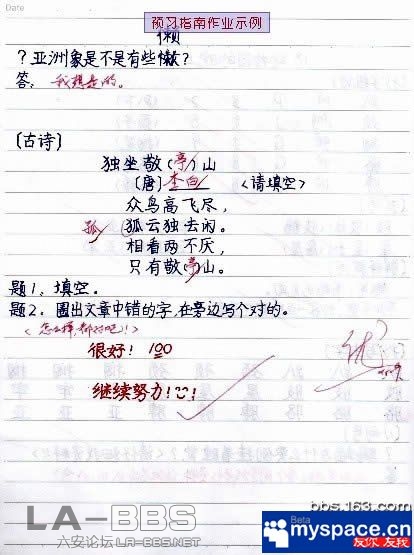 Date
预习指南作业示例
懒
?亚洲象是不是有些懒?
答:我想是的。
〔古诗〕
独坐敬(亭)山
〔唐〕李白 〈请填空〉
众鸟高飞尽,
孤 狐云独去闲。
相看两不厌,
只有敬(亭)山。
题1、填空。
题2、圈出文章中错的字,在旁边写个对的。
〈怎么样,都对吧!〉
很好! 100
优
继续努力!
bbs.163.com
LA-BBS
六安论坛LA-BBS.NET
Beta
myspace.cn
友你 友我